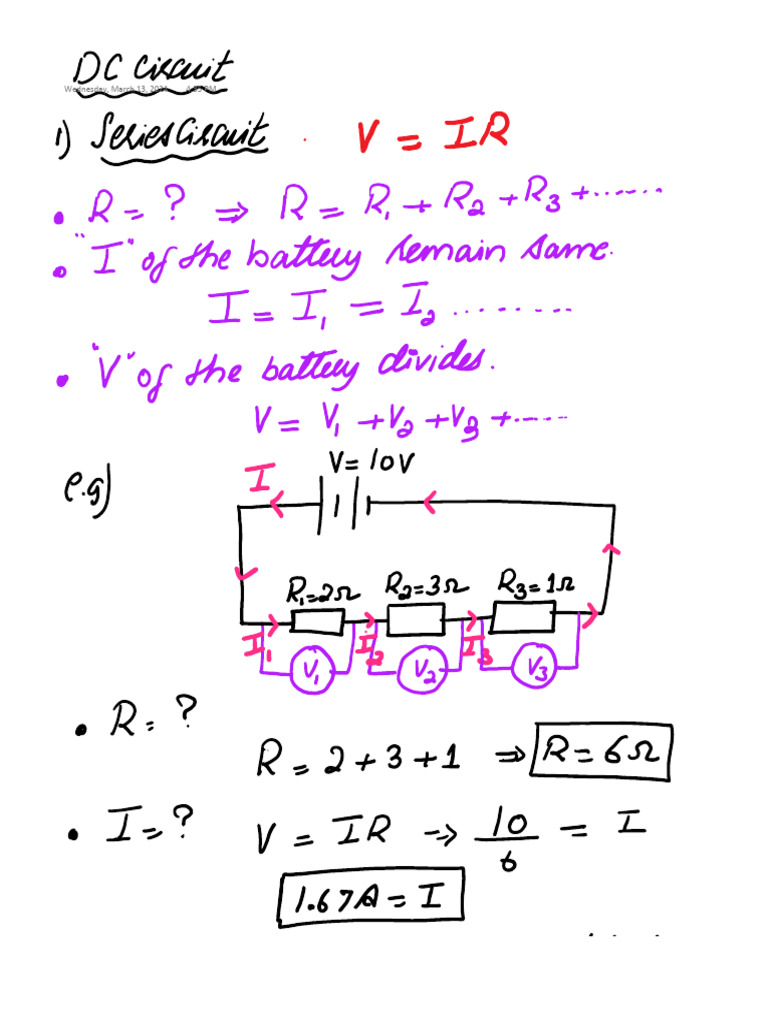 DC Circuit
Wednesday, March 13, 2024 4:05 PM
1) Series Circuit . V = IR
• R = ? ⇒ R = R₁ + R₂ + R₃ + ......
• "I" of the battery remain same.
I = I₁ = I₂ .........
• "V" of the battery divides.
V = V₁ + V₂ + V₃ + .....
e.g)
I V = 10V
R₁=2Ω R₂=3Ω R₃=1Ω
I₁ I₂ I₃
V₁ V₂ V₃
• R = ?
R = 2 + 3 + 1 ⇒ R = 6Ω
• I = ? V = IR → 10/6 = I
1.67A = I